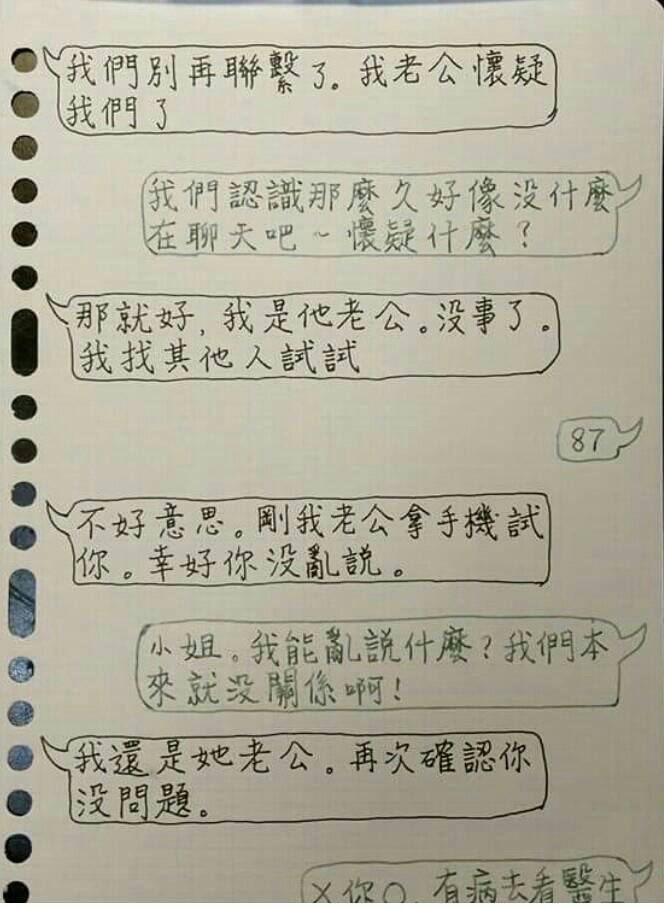 我們別再聯繫了。我老公懷疑
我們了
我們認識那麼久好像没什麼
在聊天吧~懷疑什麼？
那就好，我是他老公。没事了。
我找其他人試試
87
不好意思。剛我老公拿手機試
你。幸好你没亂說。
小姐。我能亂說什麼？我們本
來就没關係啊！
我還是她老公。再次確認你
没問題。
X你○，有病去看醫生